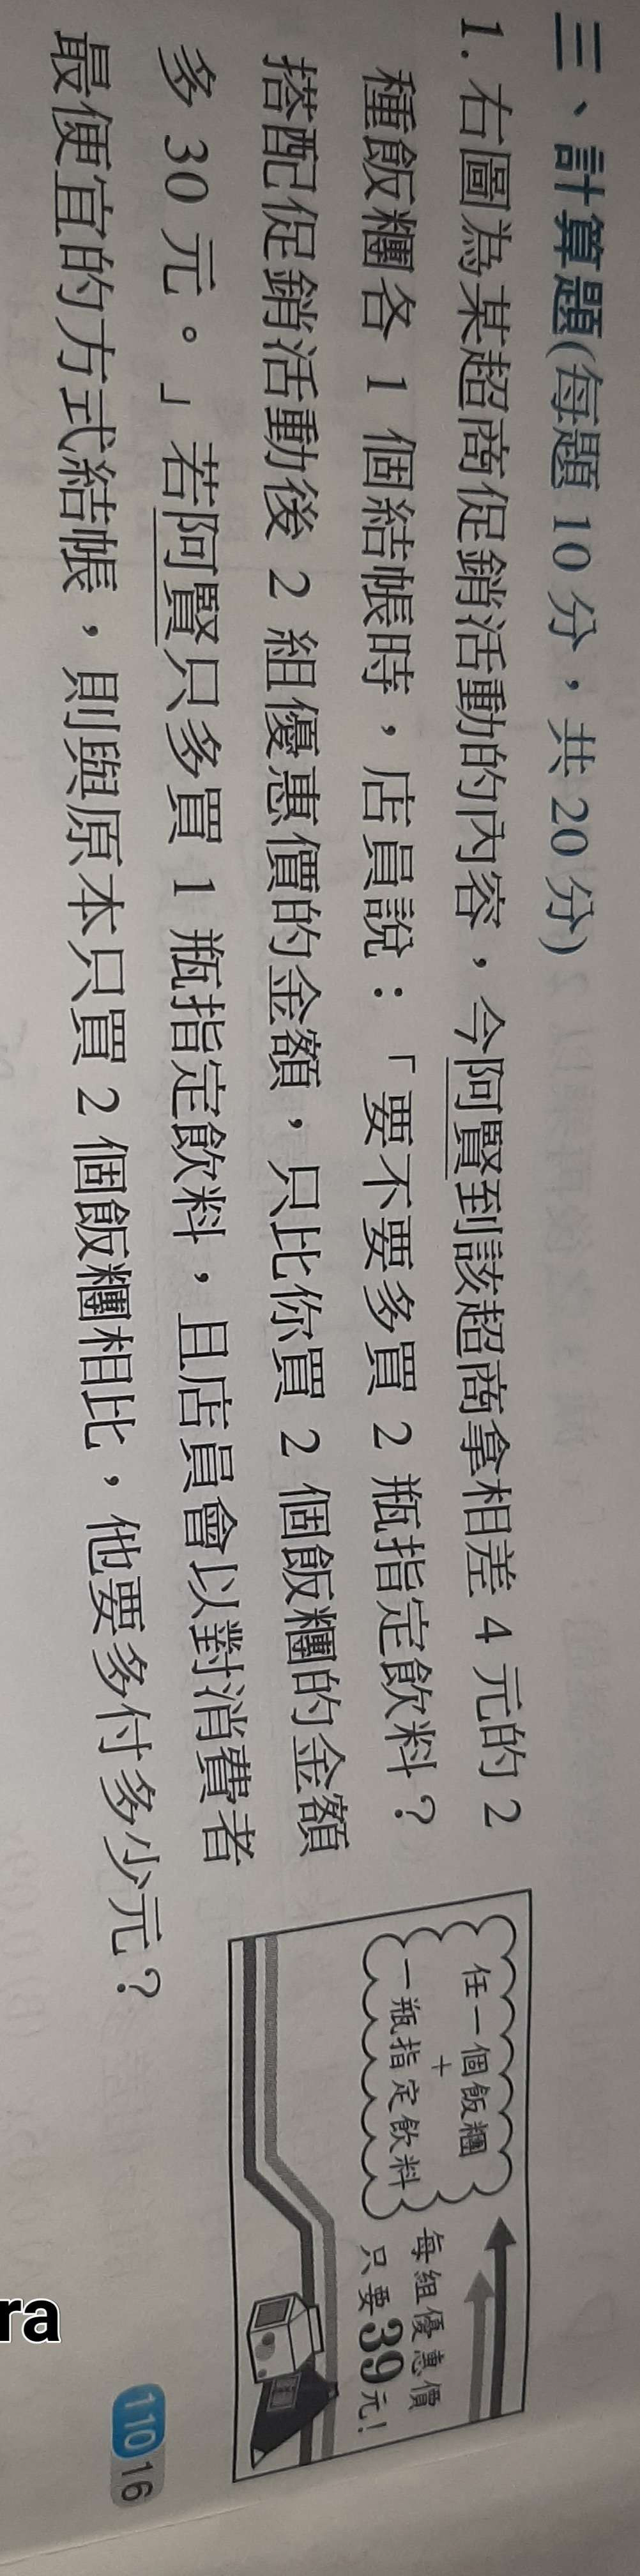 三、計算題(每題 10 分，共 20 分)
1. 右圖為某超商促銷活動的內容，今阿賢到該超商拿相差 4 元的 2
種飯糰各 1 個結帳時，店員說：「要不要多買 2 瓶指定飲料？
搭配促銷活動後 2 組優惠價的金額，只比你買 2 個飯糰的金額
多 30 元。」若阿賢只多買 1 瓶指定飲料，且店員會以對消費者
最便宜的方式結帳，則與原本只買 2 個飯糰相比，他要多付多少元？
任一個飯糰
+
一瓶指定飲料
每組優惠價
只要39元！
110
16
ra